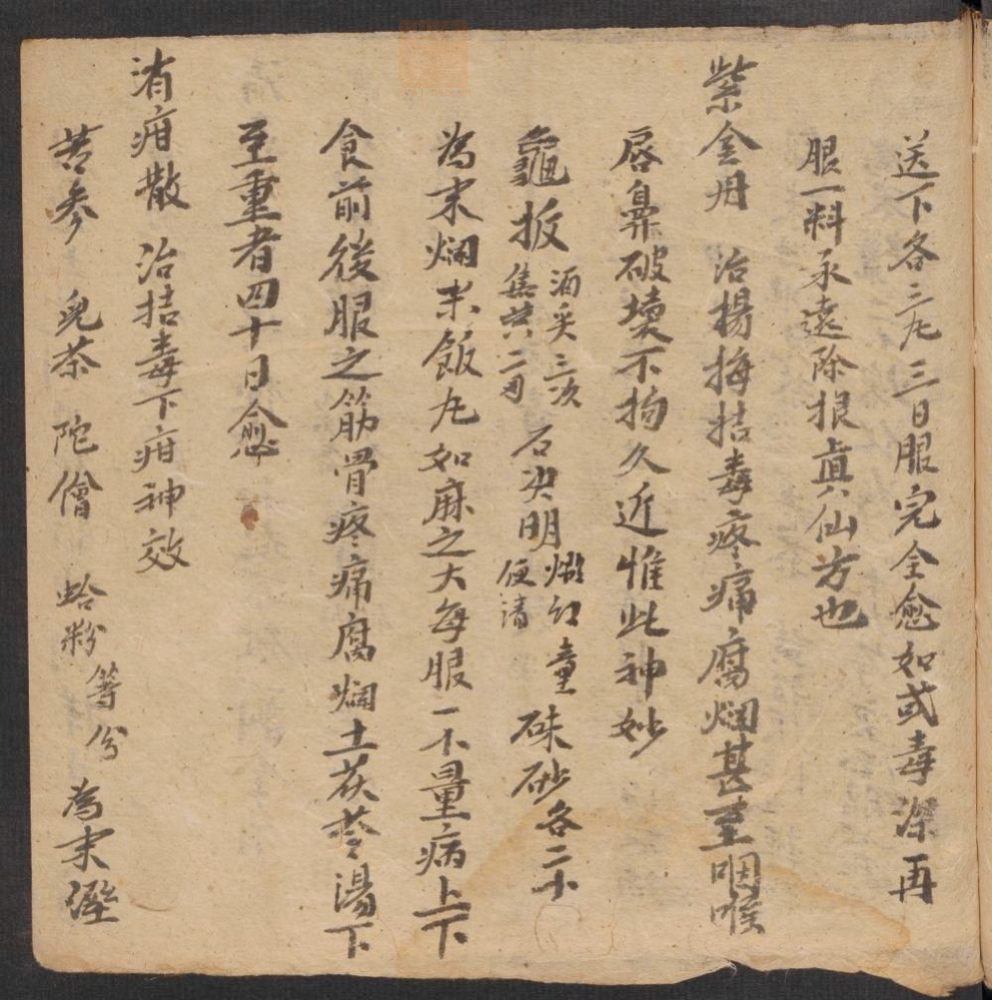 送下各三丸三日服完全愈如或毒深再
服一料永遠除根真仙方也
紫金丹 治楊梅拮毒疼痛腐烂甚至咽喉
唇鼻破壞不拘久近惟此神妙
龜板 酒炙三次 焦共二 石决明 煅红童便清 硃砂各二
為末爛米飯丸如麻之大每服一 量病上下
食前後服之筋骨疼痛腐爛土茯苓湯下
至重者四十日愈
消疳散 治拮毒下疳神效
苦参 兒茶 陀僧 蛤粉等份 為末